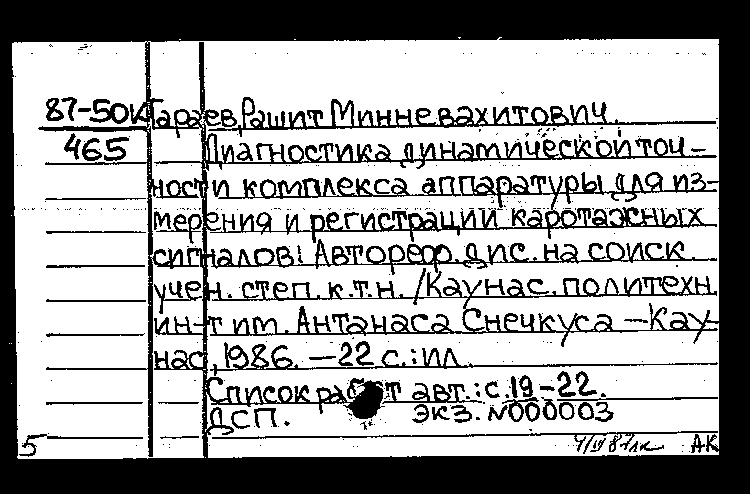 87-50К Гараев, Рашит Минневахитович.
465 Диагностика динамической точ-
ности комплекса аппаратуры для из-
мерения и регистрации каротажных
сигналов: Автореф. дис. на соиск.
учен. степ. к.т.н. /Каунас. политехн.
ин-т им. Антанаса Снечкуса —Кау-
нас, 1986. —22 с.: ил.
Список работ авт.: с. 19-22.
ДСП. экз. N000003
5 АК